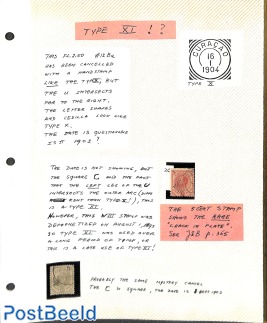 TYPE XI !?
THIS FL.2.50 #12Ba
HAS BEEN CANCELLED
WITH A HANDSTAMP
LIKE THE TYPE X, BUT
THE U INTERSECTS
FAR TO THE RIGHT,
THE LETTER SHAPES
AND CEDILLA LOOK LIKE
TYPE X.
THE DATE IS QUESTIONABLE
IS IT 1902?
CURAÇAO
16
1904
TYPE X
THE DATE IS NOT SHOWING, BUT
THE SQUARE C AND THE FACT
THAT THE LEFT LEG OF THE U
INTERSECTS THE OUTER ARC (
RIGHT THAN TYPE X!), THIS
IS A TYPE XI.
HOWEVER, THIS STAMP WAS
DEMONETIZED ON AUGUST 1,
SO TYPE XI WAS USED OVER
A LONG PERIOD OF TIME, OR
THIS IS A LATE USE OF TYPE XI!
THE 5 CENT STAMP
SHOWS THE RARE
"CRACK IN PLATE".
SEE J&B P. 365
PROBABLY THE SAME MYSTERY CANCEL
THE C IS SQUARE, THE DATE IS SEPT 1902
PostBeeld